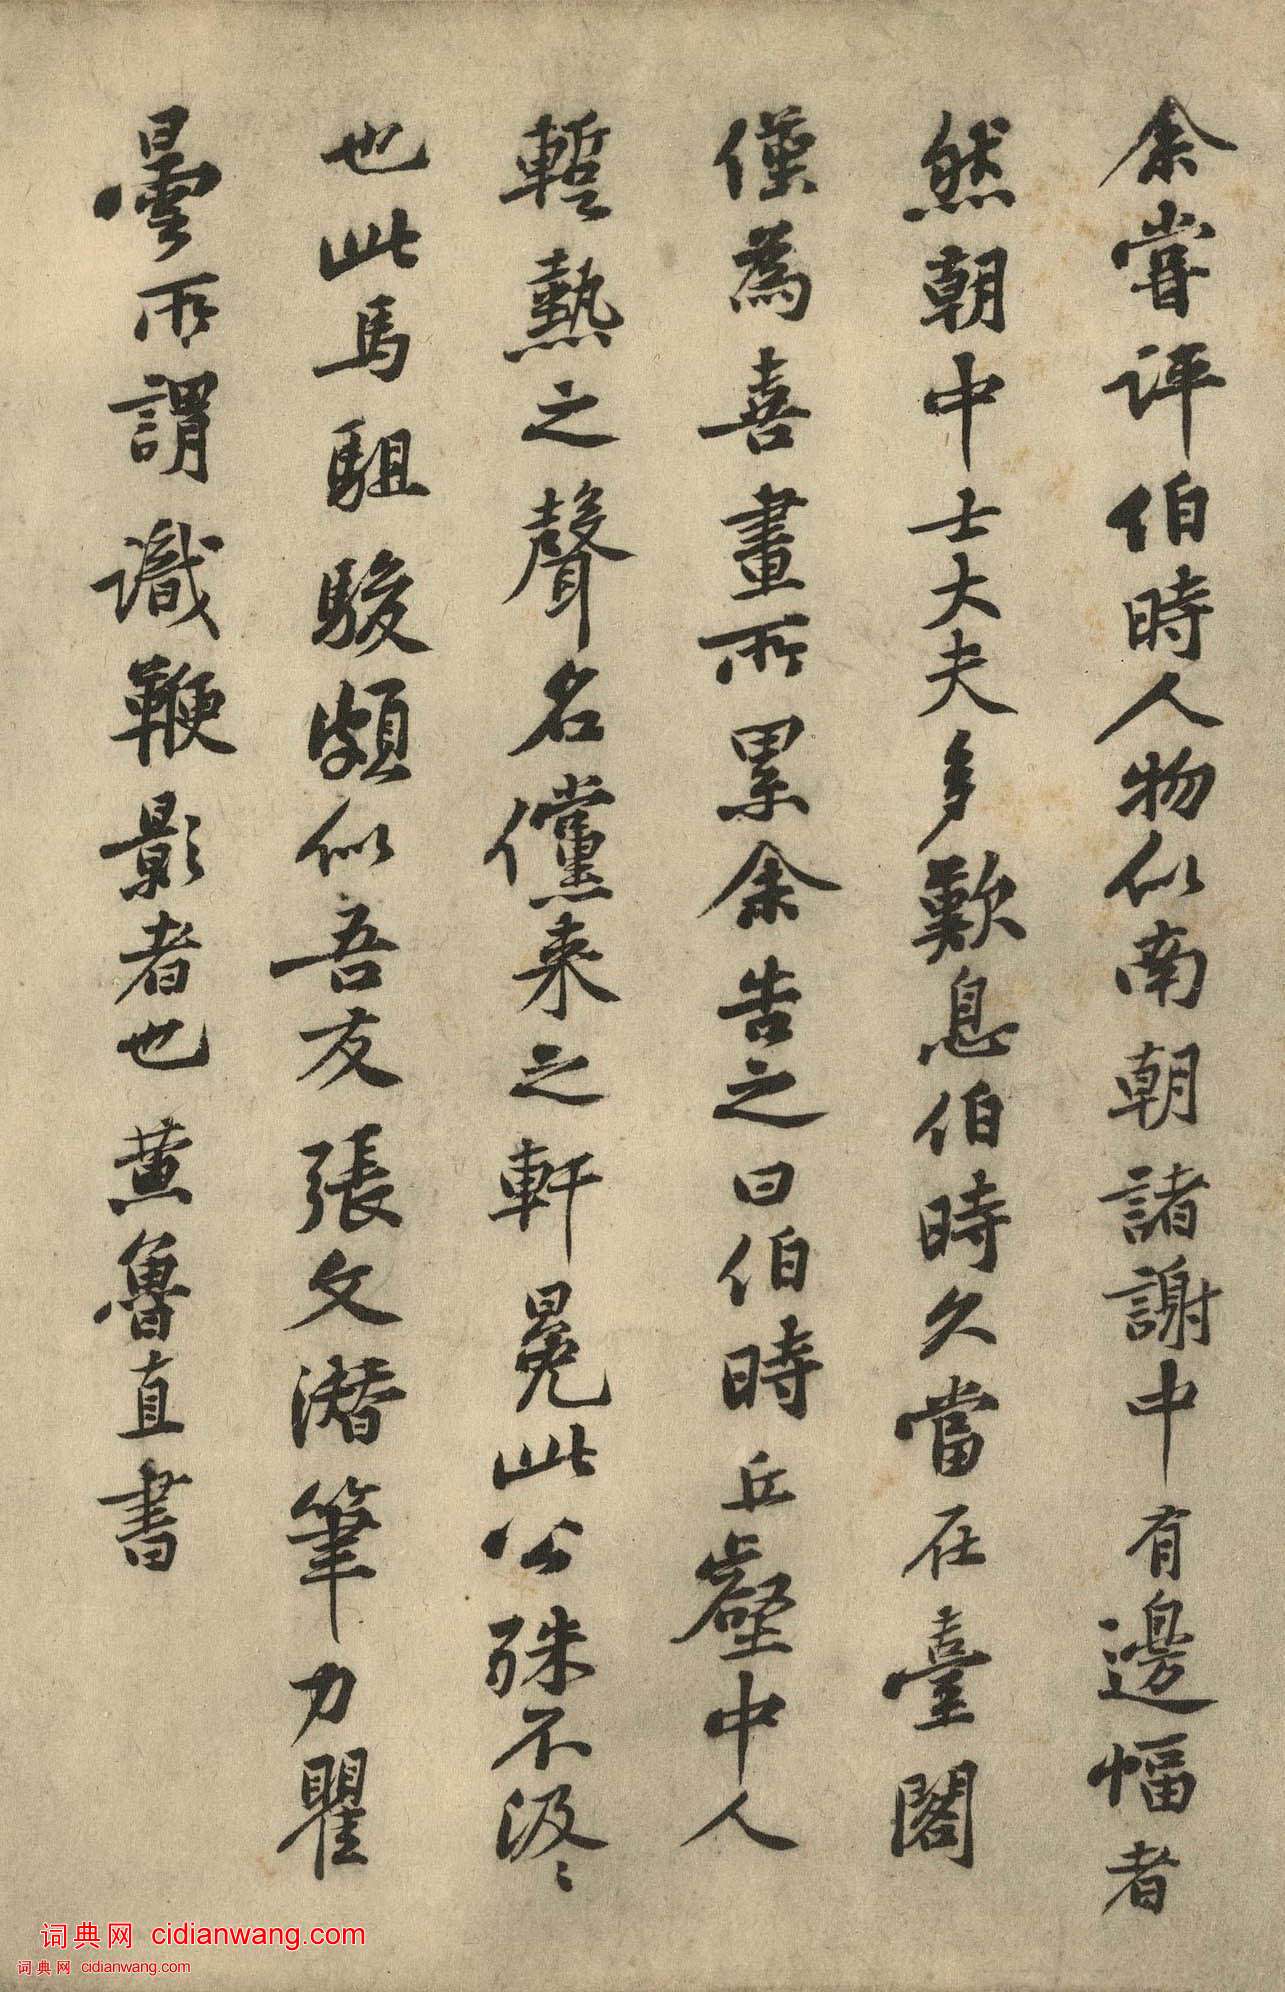 余嘗評伯時人物似南朝諸謝中有邊幅者
然朝中士大夫多歎息伯時久當在臺閣
僅為喜畫所累余告之曰伯時丘壑中人
蹔熱之聲名儻来之軒冕此公殊不汲〻
也此馬駔駿頗似吾友張文潜筆力瞿
曇所謂識鞭影者也黄魯直書
词典网 cidianwang.com
词典网 cidianwang.com